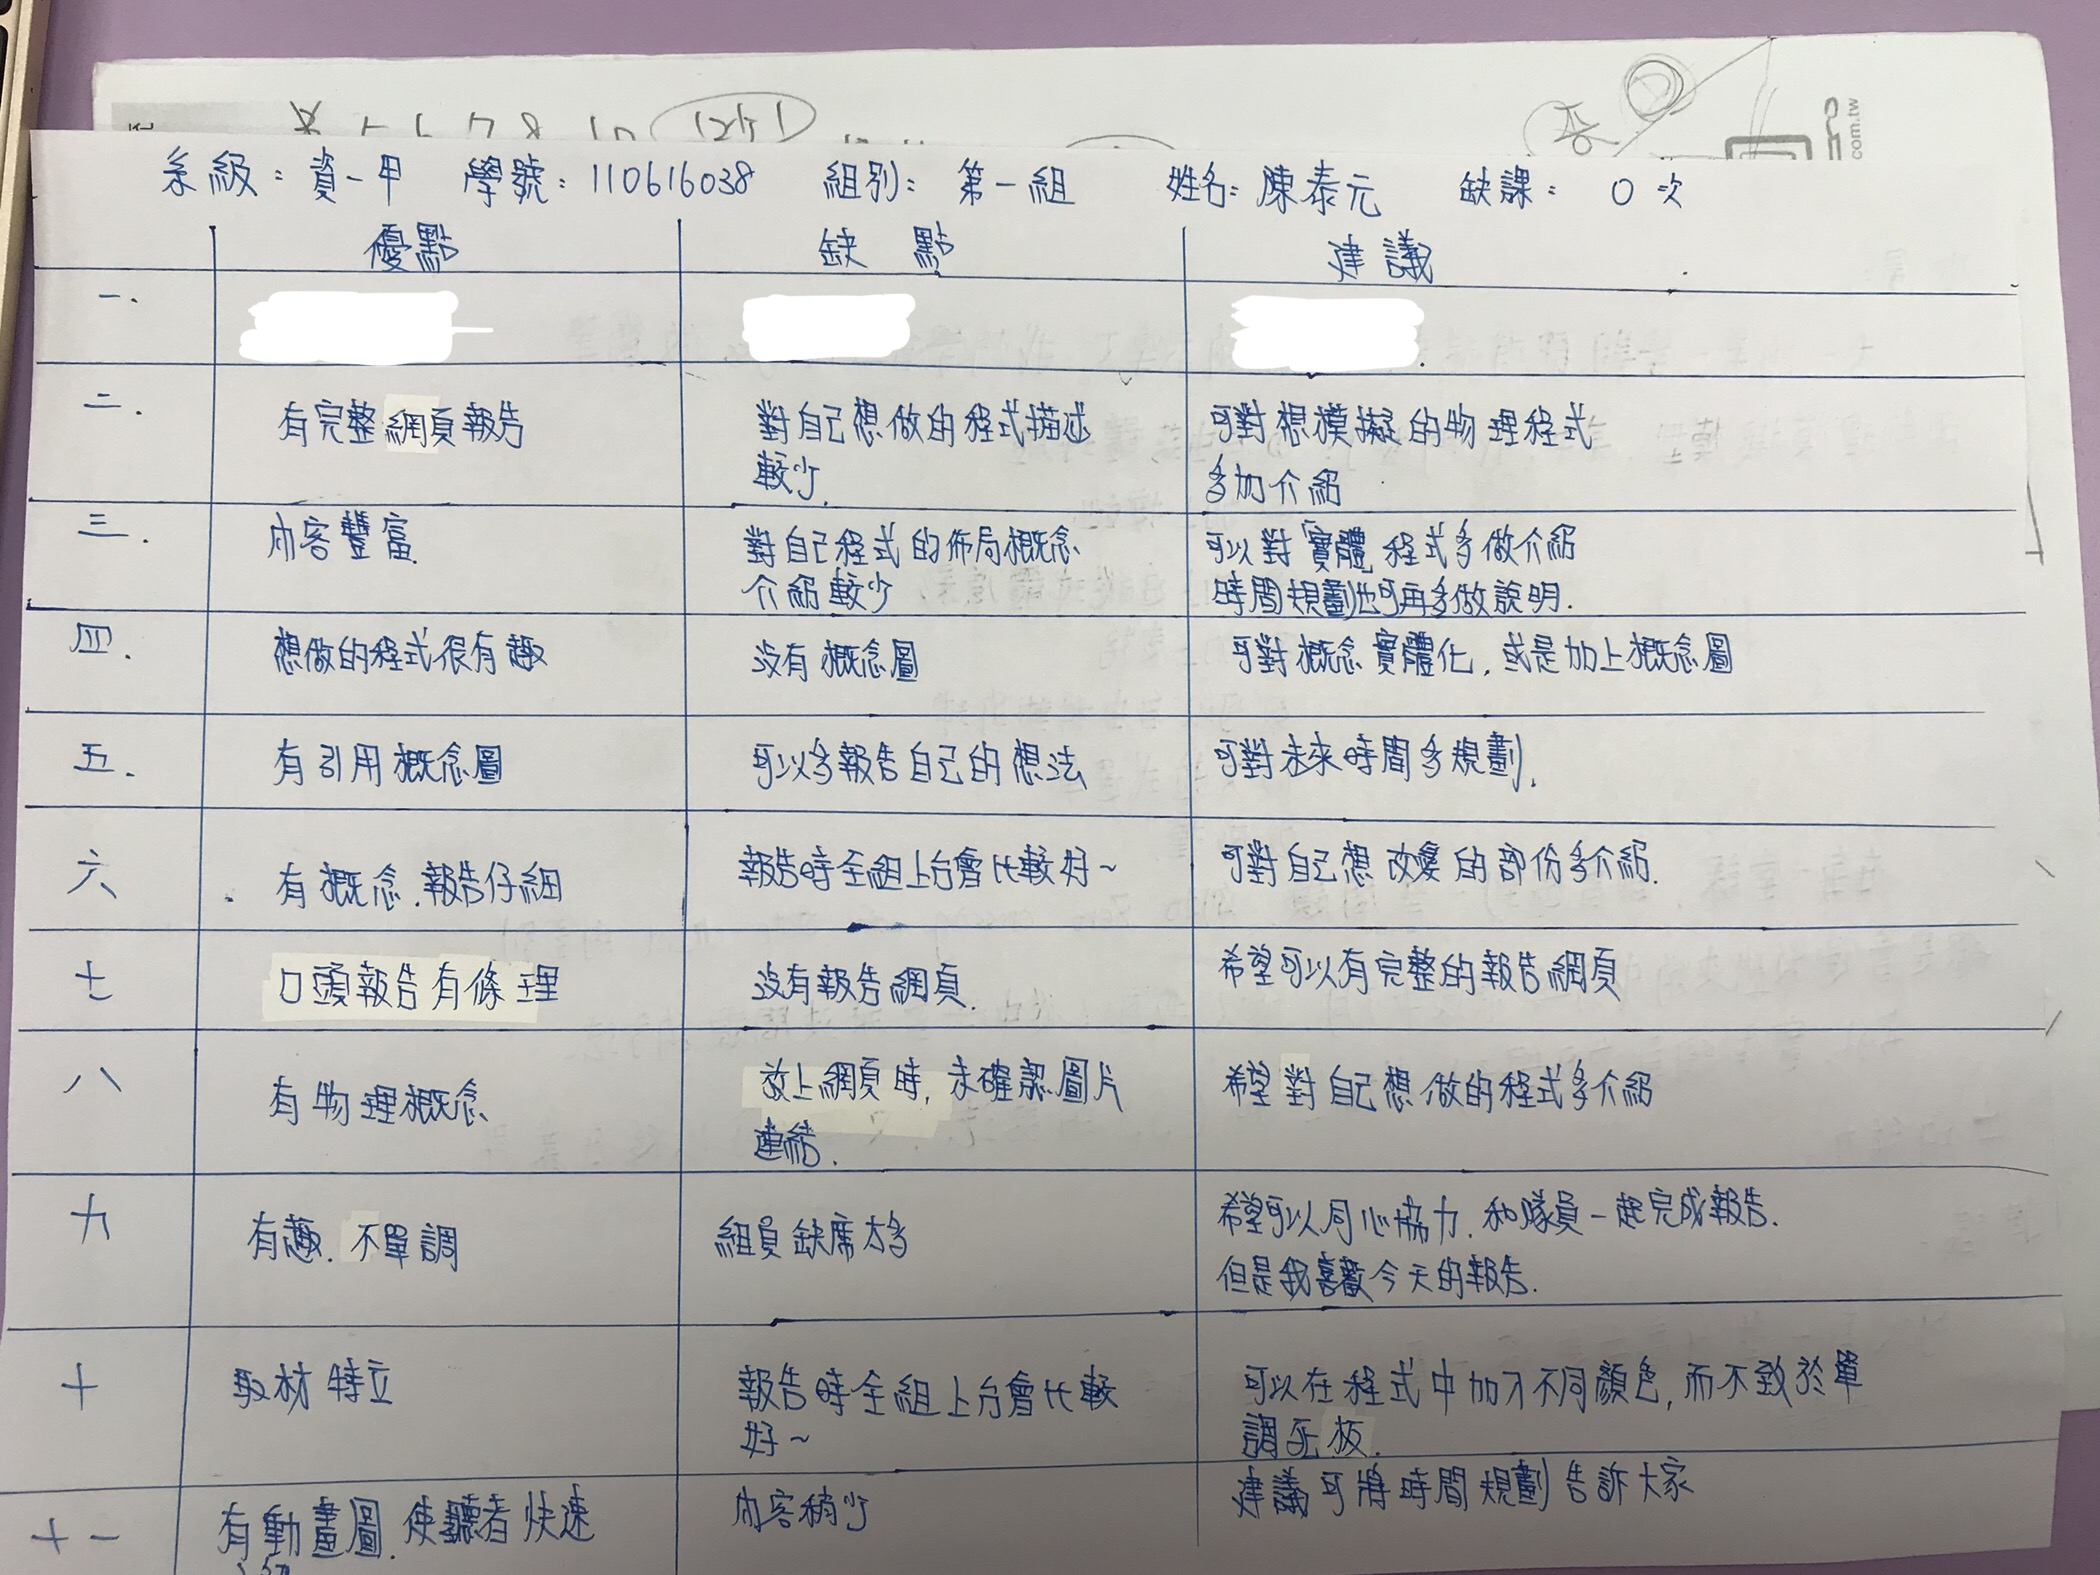 系級：資一甲 學號：110616038 組別：第一組 姓名：陳泰元 缺課：0次
優點 缺點 建議
一.
二. 有完整網頁報告 對自己想做的程式描述 可對想模擬的物理程式
較少. 多加介紹
三. 內容豐富. 對自己程式的佈局概念 可以對「實體」程式多做介紹
介紹較少 時間規劃也可再多做說明.
四. 想做的程式很有趣 沒有概念圖 可對概念實體化,或是加上概念圖
五. 有引用概念圖 可以多報告自己的想法 可對未來時間多規劃.
六 有概念.報告仔細 報告時全組上台會比較好~ 可對自己想改變的部份多介紹.
七 口頭報告有條理 沒有報告網頁. 希望可以有完整的報告網頁
八 有物理概念 放上網頁時,未確認圖片 希望對自己想做的程式多介紹
連結.
九 有趣.不單調 組員缺席太多 希望可以同心協力.和隊員一起完成報告.
但是我喜歡今天的報告.
十 取材特立 報告時全組上台會比較 可以在程式中加入不同顏色,而不致於單
好~ 調死板.
十一 有動畫圖.使聽者快速 內容稍少 建議可將時間規劃告訴大家
com.tw